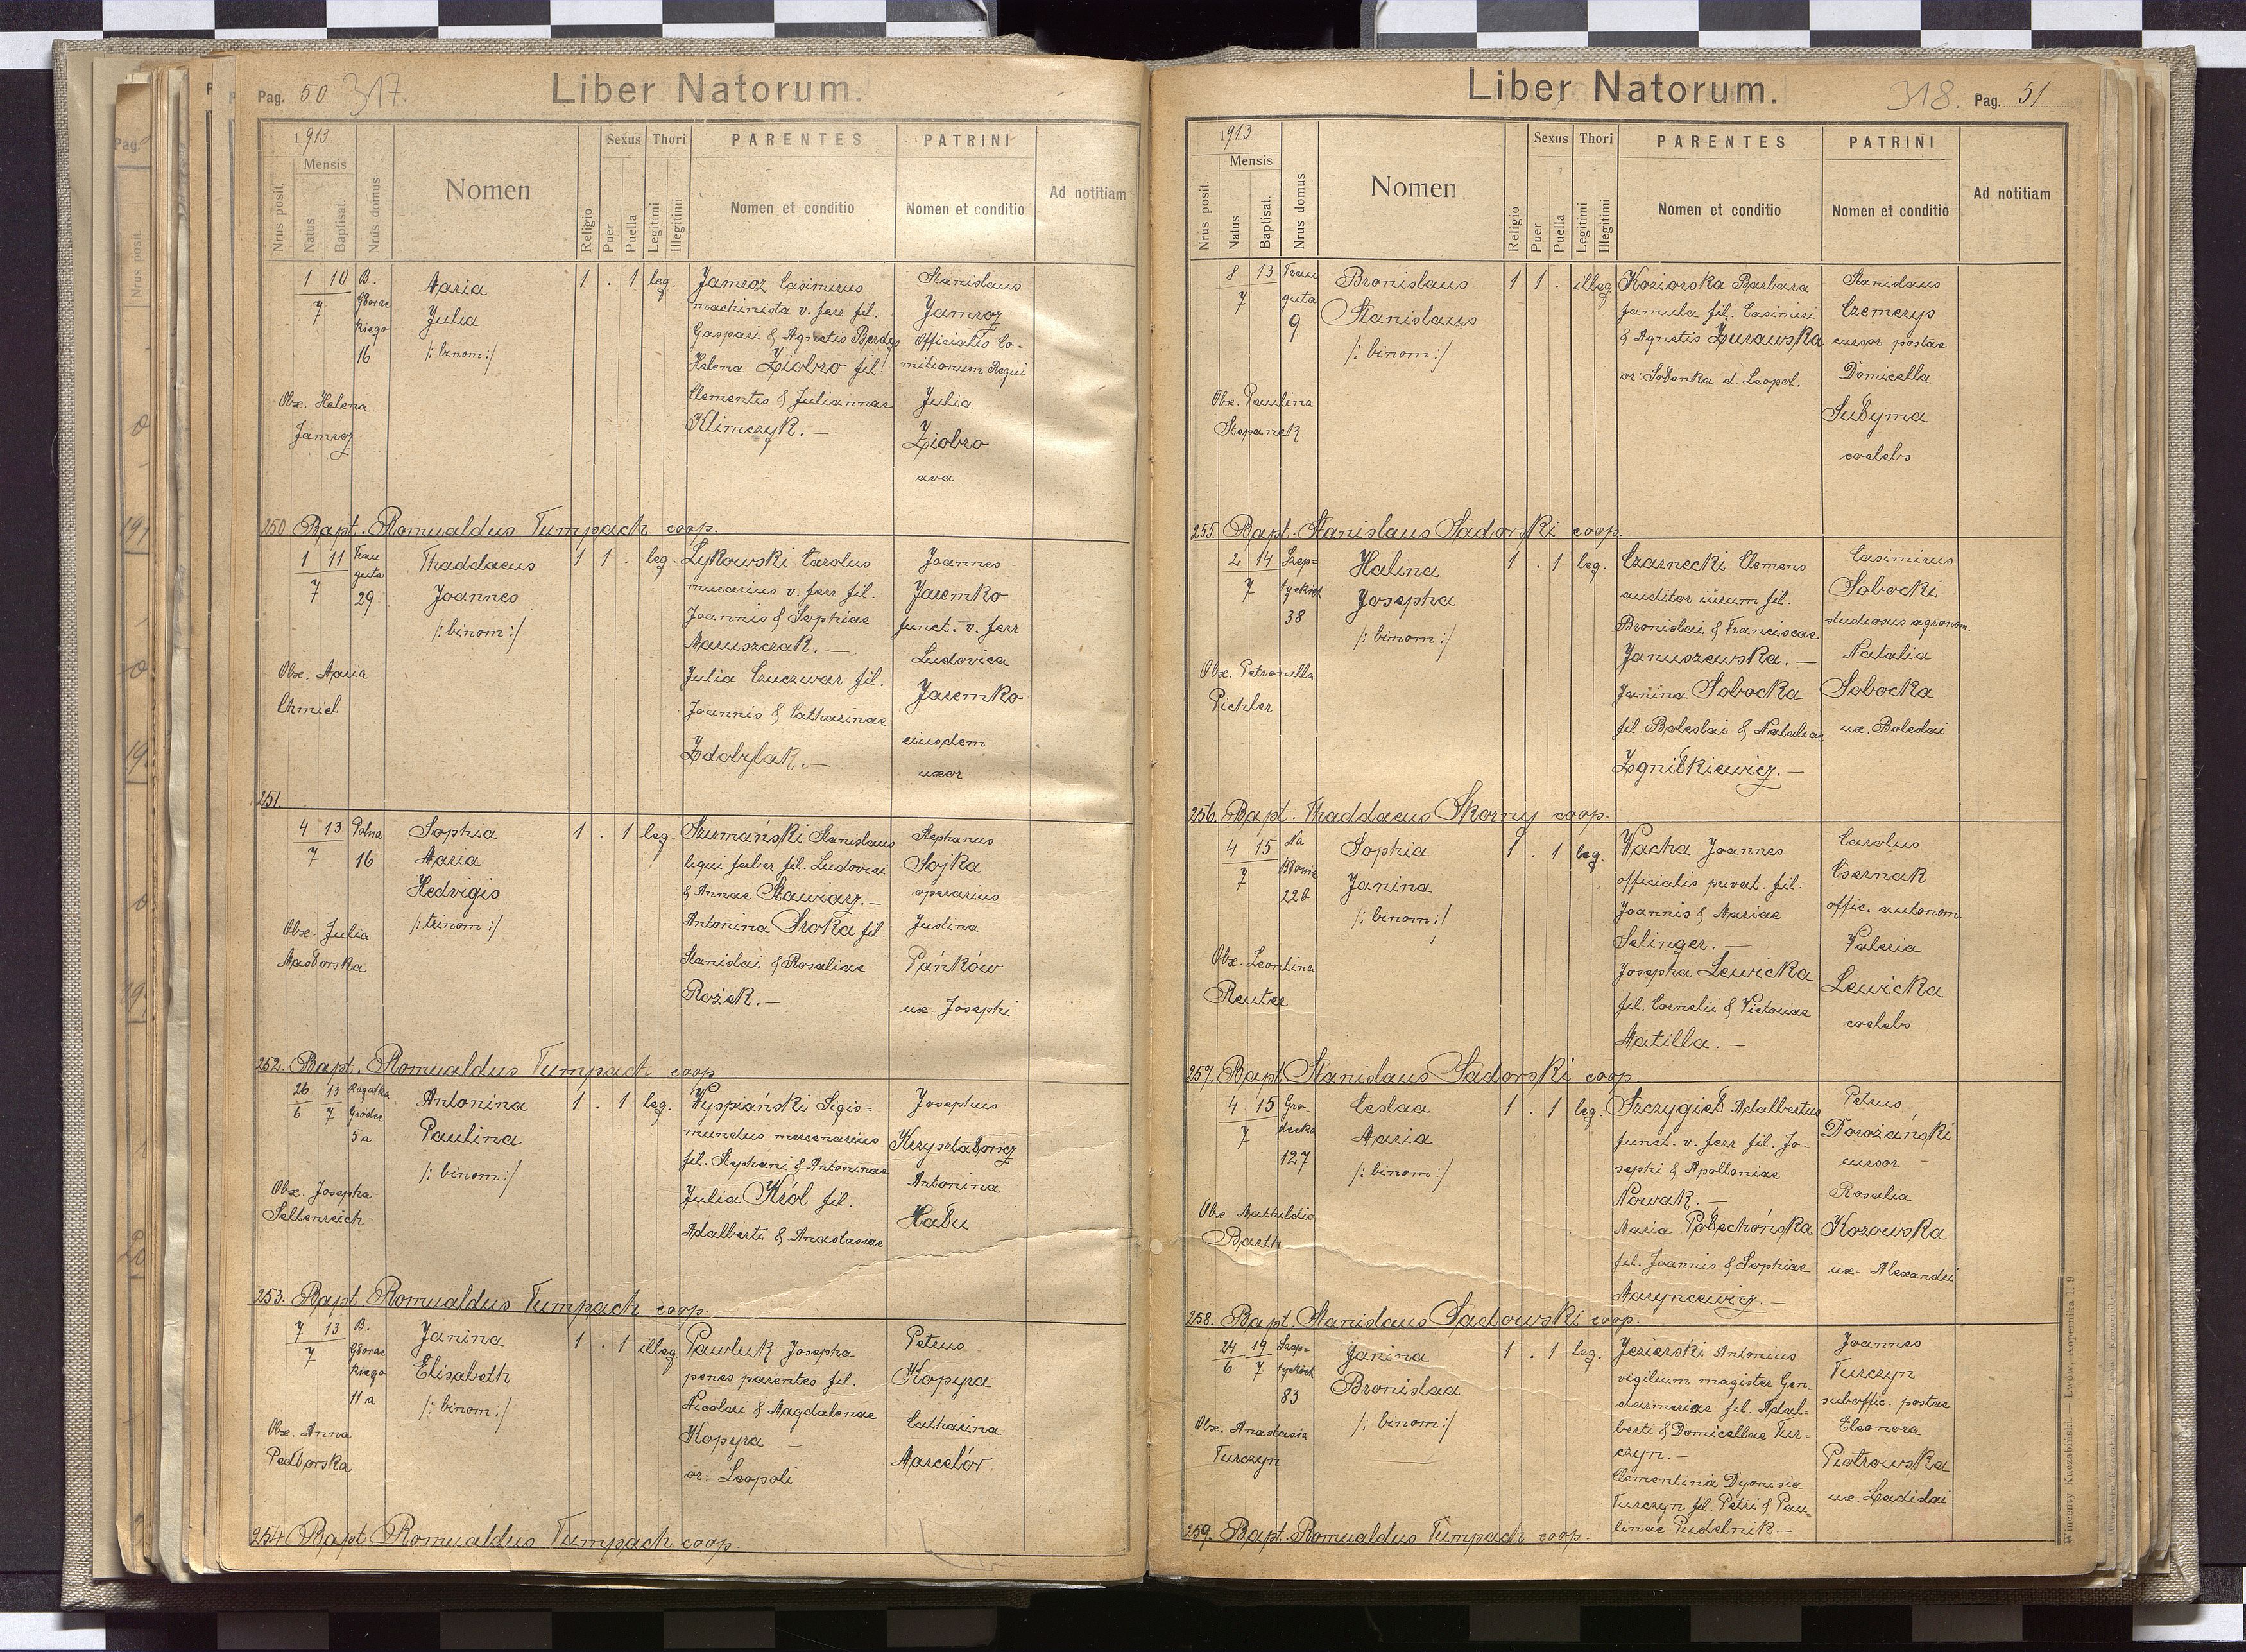 Pag. 50 317.
Liber Natorum.
1913.
Mensis
Nrus posit.
Natus
Baptisat.
Nrus domus
Nomen
Religio
Sexus
Puer
Puella
Thori
Legitimi
Illegitimi
PARENTES
Nomen et conditio
PATRINI
Nomen et conditio
Ad notitiam
1 10 B.
7 Głowac
kiego
16
Obx. Helena
Jamroz
Maria
Julia
/: binom:/
1 . 1 leg.
Jamroz Casimirus
machinista v. ferr fil.
Gaspari & Agnetis Berdys
Helena Ziobro fil.
Clementis & Juliannae
Klimczyk. —
Stanislaus
Jamroz
Officialis Co-
mitionum Regui
Julia
Ziobro
ava
250 Bapt. Romualdus Tumpach coop.
1 11 Trau
7 guta
29
Obx. Maria
Chmiel
Thaddaeus
Joannes
/: binom:/
1 1 . leg.
Lykowski Carolus
murarius v. ferr fil.
Joannis & Sophiae
Maruszczak. —
Julia Czuczwar fil.
Joannis & Catharinae
Zdobylak. —
Joannes
Jaremko
funct. v. ferr
Ludovica
Jaremko
eiusdem
uxor
251.
4 13 Polna
7 16
Obx. Julia
Masłorska
Sophia
Maria
Hedvigis
/: trinom:/
1 . 1 leg.
Szumański Stanislaus
liqui faber fil. Ludovici
& Annae Stawiarz. —
Antonina Sroka fil.
Stanislai & Rosaliae
Rożek. —
Stephanus
Sojka
operarius
Justina
Pańków
ux. Josephi
252. Bapt. Romualdus Tumpach coop
26 13 Rogatka
6 7 Gródec
5a
Obx. Josepha
Seltenreich
Antonina
Paulina
/: binom:/
1 . 1 leg.
Wyspiański Sigis=
mundus mercenarius
fil. Stephani & Antoninae
Julia Król fil.
Adalberti & Anastasiae
Josephus
Krzyształowicz
Antonina
Hału
253. Bapt Romualdus Tumpach coop.
7 13 B.
7 Głowac
kiego
11 a
Obx. Anna
Pedłowska
Janina
Elisabeth
/: binom:/
1 . 1 illeg
Pawluk Josepha
penes parentes fil.
Nicolai & Magdalenae
Kopyra —
or: Leopoli
Petrus
Kopyra
Catharina
Marcelów
254 Bapt Romualdus Tumpach coop.
Liber Natorum.
318. Pag. 51
1913
Mensis
Nrus posit.
Natus
Baptisat.
Nrus domus
Nomen
Religio
Sexus
Puer
Puella
Thori
Legitimi
Illegitimi
PARENTES
Nomen et conditio
PATRINI
Nomen et conditio
Ad notitiam
8 13 Trau
7 guta
9
Obx. Paulina
Stepanek
Bronislaus
Stanislaus
/: binom:/
1 1 . illeg
Koziorska Barbara
famula fil. Casimiri
& Agnetis Żurawska
or: Sołonka d. Leopol.
Stanislaus
Czemerys
cursor postae
Domicella
Sułyma
coelebs
255. Bapt. Stanislaus Sadowski coop.
2 14 Szep=
7 tyckich
38
Obx. Petronilla
Pichler
Halina
Josepha
/: binom:/
1 . 1 leg.
Czarnecki Clemens
auditor iurum fil.
Bronislai & Franciscae
Januszewska. —
Janina Sobocka
fil. Boleslai & Nataliae
Zgniłkiewicz. —
Casimirus
Sobocki
studiosus agronom.
Natalia
Sobocka
ux. Boleslai
256. Bapt. Thaddaeus Skorny coop.
4 15 Na
7 Błonie
22b
Obx. Leontina
Reuter
Sophia
Janina
/: binom:/
1 . 1 leg.
Wacha Joannes
officialis privat. fil.
Joannis & Mariae
Selinger. —
Josepha Lewicka
fil. Cornelii & Victoriae
Matilla. —
Carolus
Csernak
offic. autonom.
Valeria
Lewicka
coelebs
257. Bapt Stanislaus Sadowski coop.
4 15 Gro-
7 decka
127
Obx Mathildis
Barth
Ceslaa
Maria
/: binom:/
1 . 1 leg.
Szczygieł Adalbertus
funct. v. ferr fil. Jo-
sephi & Apolloniae
Nowak. —
Maria Połechońska
fil. Joannis & Sophiae
Maryncewicz. —
Petrus
Dorożański
cursor —
Rosalia
Kozowska
ux. Alexandri
258. Bapt. Stanislaus Sadowski coop.
24 19 Szep=
6 7 tyckich
83
Obx. Anastasia
Turczyn
Janina
Bronislaa
/: binom:/
1 . 1 leg.
Jezierski Antonius
vigilium magister Gen.
darmeriae fil. Adal=
berti & Domicellae Tur-
czyn. —
Clementina Dyonisia
Turczyn fil. Petri & Pau=
linae Pustelnik. —
Joannes
Turczyn
suboffic. postae
Eleonora
Piotrowska
ux. Ladislai
259. Bapt. Romualdus Tumpach coop.
Wincenty Kuczabiński — Lwów, Kopernika 1. 9